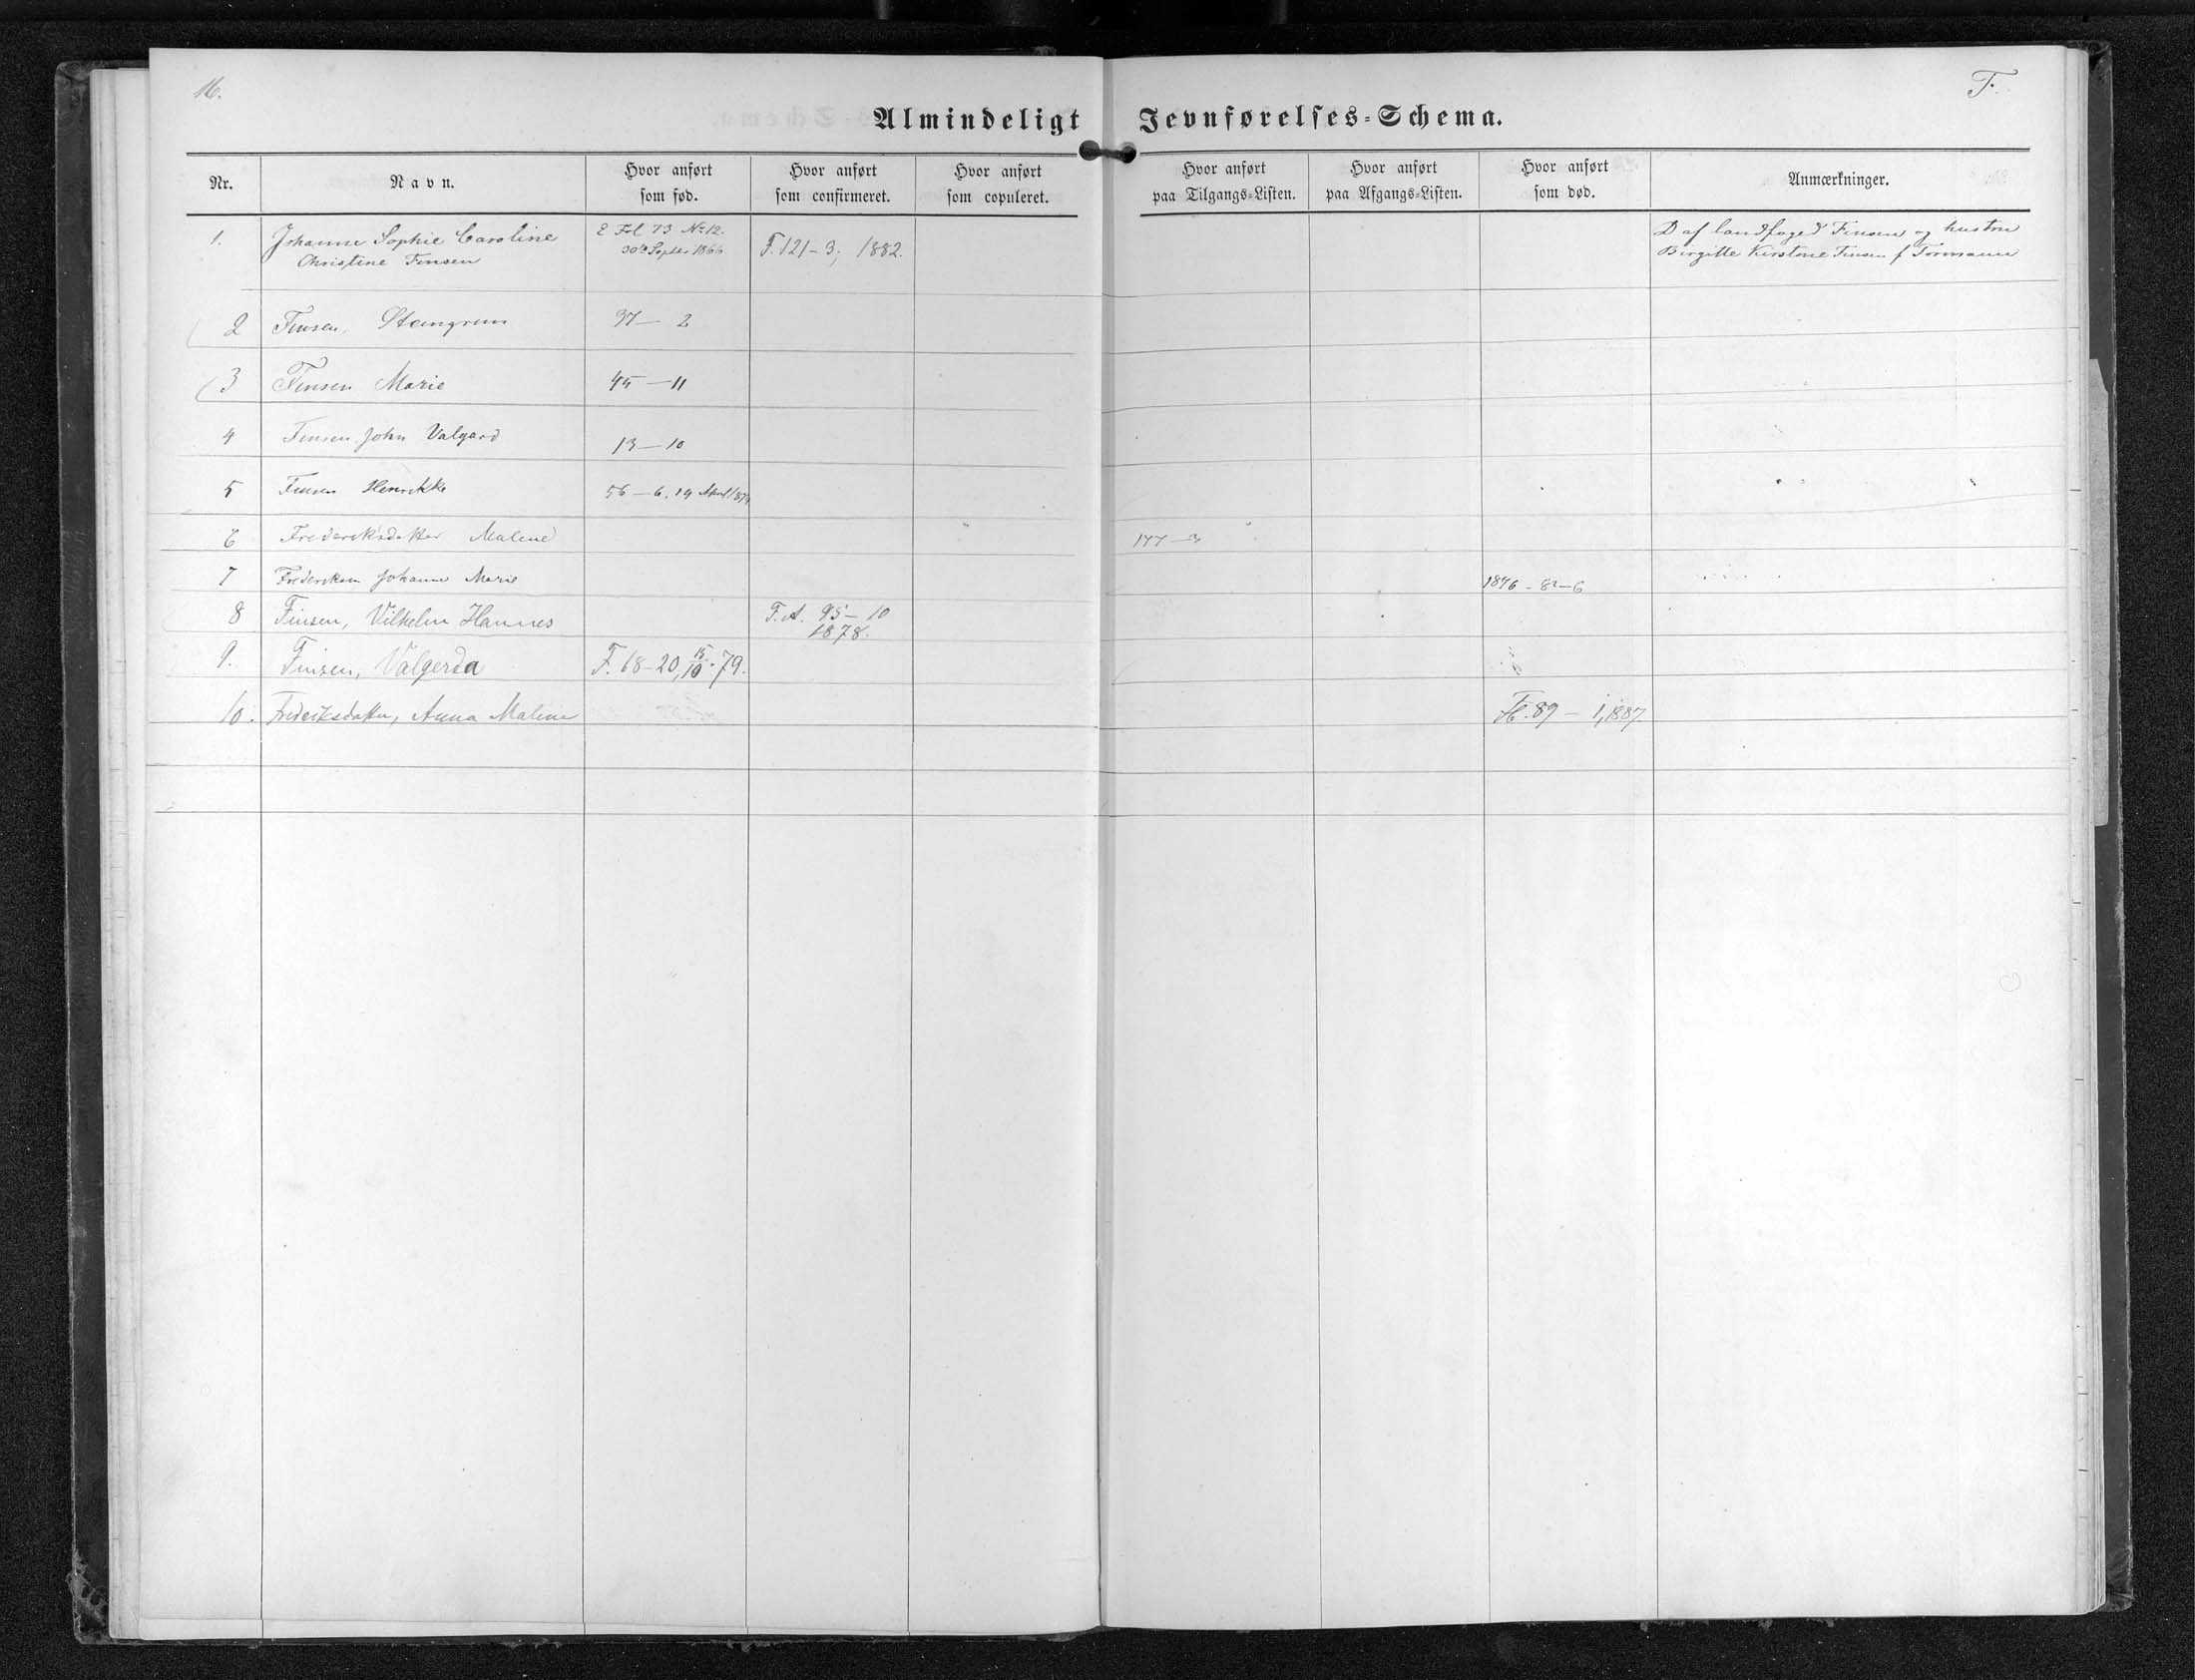 16.
F.
Almindeligt Jevnførelses-Schema.
Nr.
Navn.
Hvor anført som fød.
Hvor anført som confirmeret.
Hvor anført som copuleret.
Hvor anført paa Tilgangs-Listen.
Hvor anført paa Afgangs-Listen.
Hvor anført som død.
Anmærkninger.
1. Johanne Sophie Caroline Fol 73 No 12. D af landfoged Finsen og hustru
Christine Finsen 30te Septbr 1866 F. 121-3; 1882. Birgitte Kirstine Finsen f
2 Finsen Steingrim 37-2
3 Finsen Marie 45-11
4 Finsen John Valgard 13-10
5 Finsen Henrikke 56-6. 19 April
6 Frederiksdatter Malene 177-3
7 Frederiksen Johanne Marie 1876-82-6
8 Finsen, Vilhelm Hannes F.A. 95-10
1878.
9. Finsen, Valgerda F. 68-20, 15/10-79.
10. Frederiksdatter, Anna Malene 89-1, 1887.